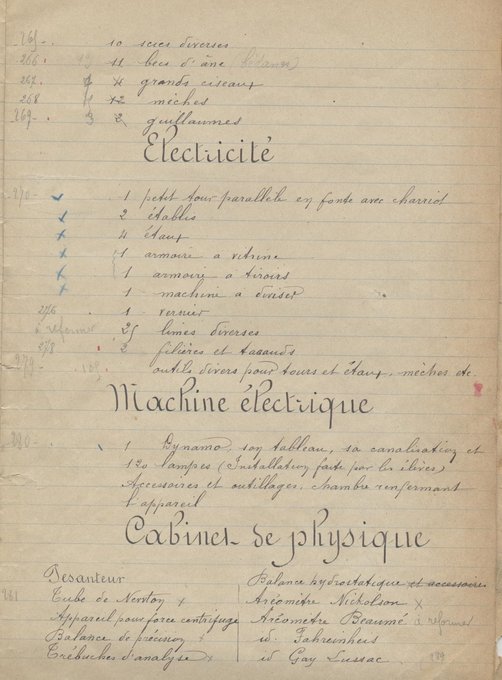 265 - 10 scies diverses
266 11 becs d'âne (bédanes)
267 4 grands ciseaux
268 12 mèches
269 - 3 2 guillaumes
Electricité
270 - 1 petit tour parallèle en fonte avec charriot
2 établis
4 étaux
1 armoire a vitrine
1 armoire a tiroirs
1 machine a diviser
276 1 vernier
a reformer 25 limes diverses
278 2 filières et tarauds
279 outils divers pour tours et étaux, mèches etc.
Machine électrique
280 - 1 Dynamo, son tableau, sa canalisation et
120 lampes (Installation faite par les élèves)
Accessoires et outillages, chambre renfermant
l'appareil
Cabinet de physique
Pesanteur
281 Tube de Newton x
Appareil pour force centrifuge
Balance de précision x
Trébuchet d'analyse x
Balance hydrostatique et accessoires
Aréomètre Nickolson x
Aréomètre Beaumé a reformer
id. Fahrenheit
id Gay Lussac